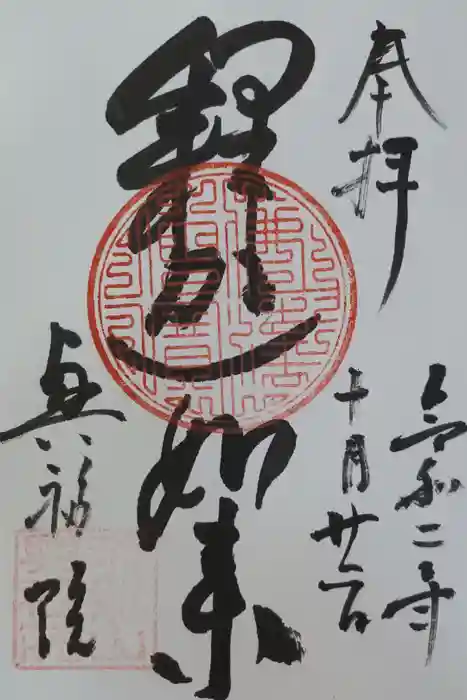 奉拝
令和二年
十月廿日
釋迦如来
眞福院